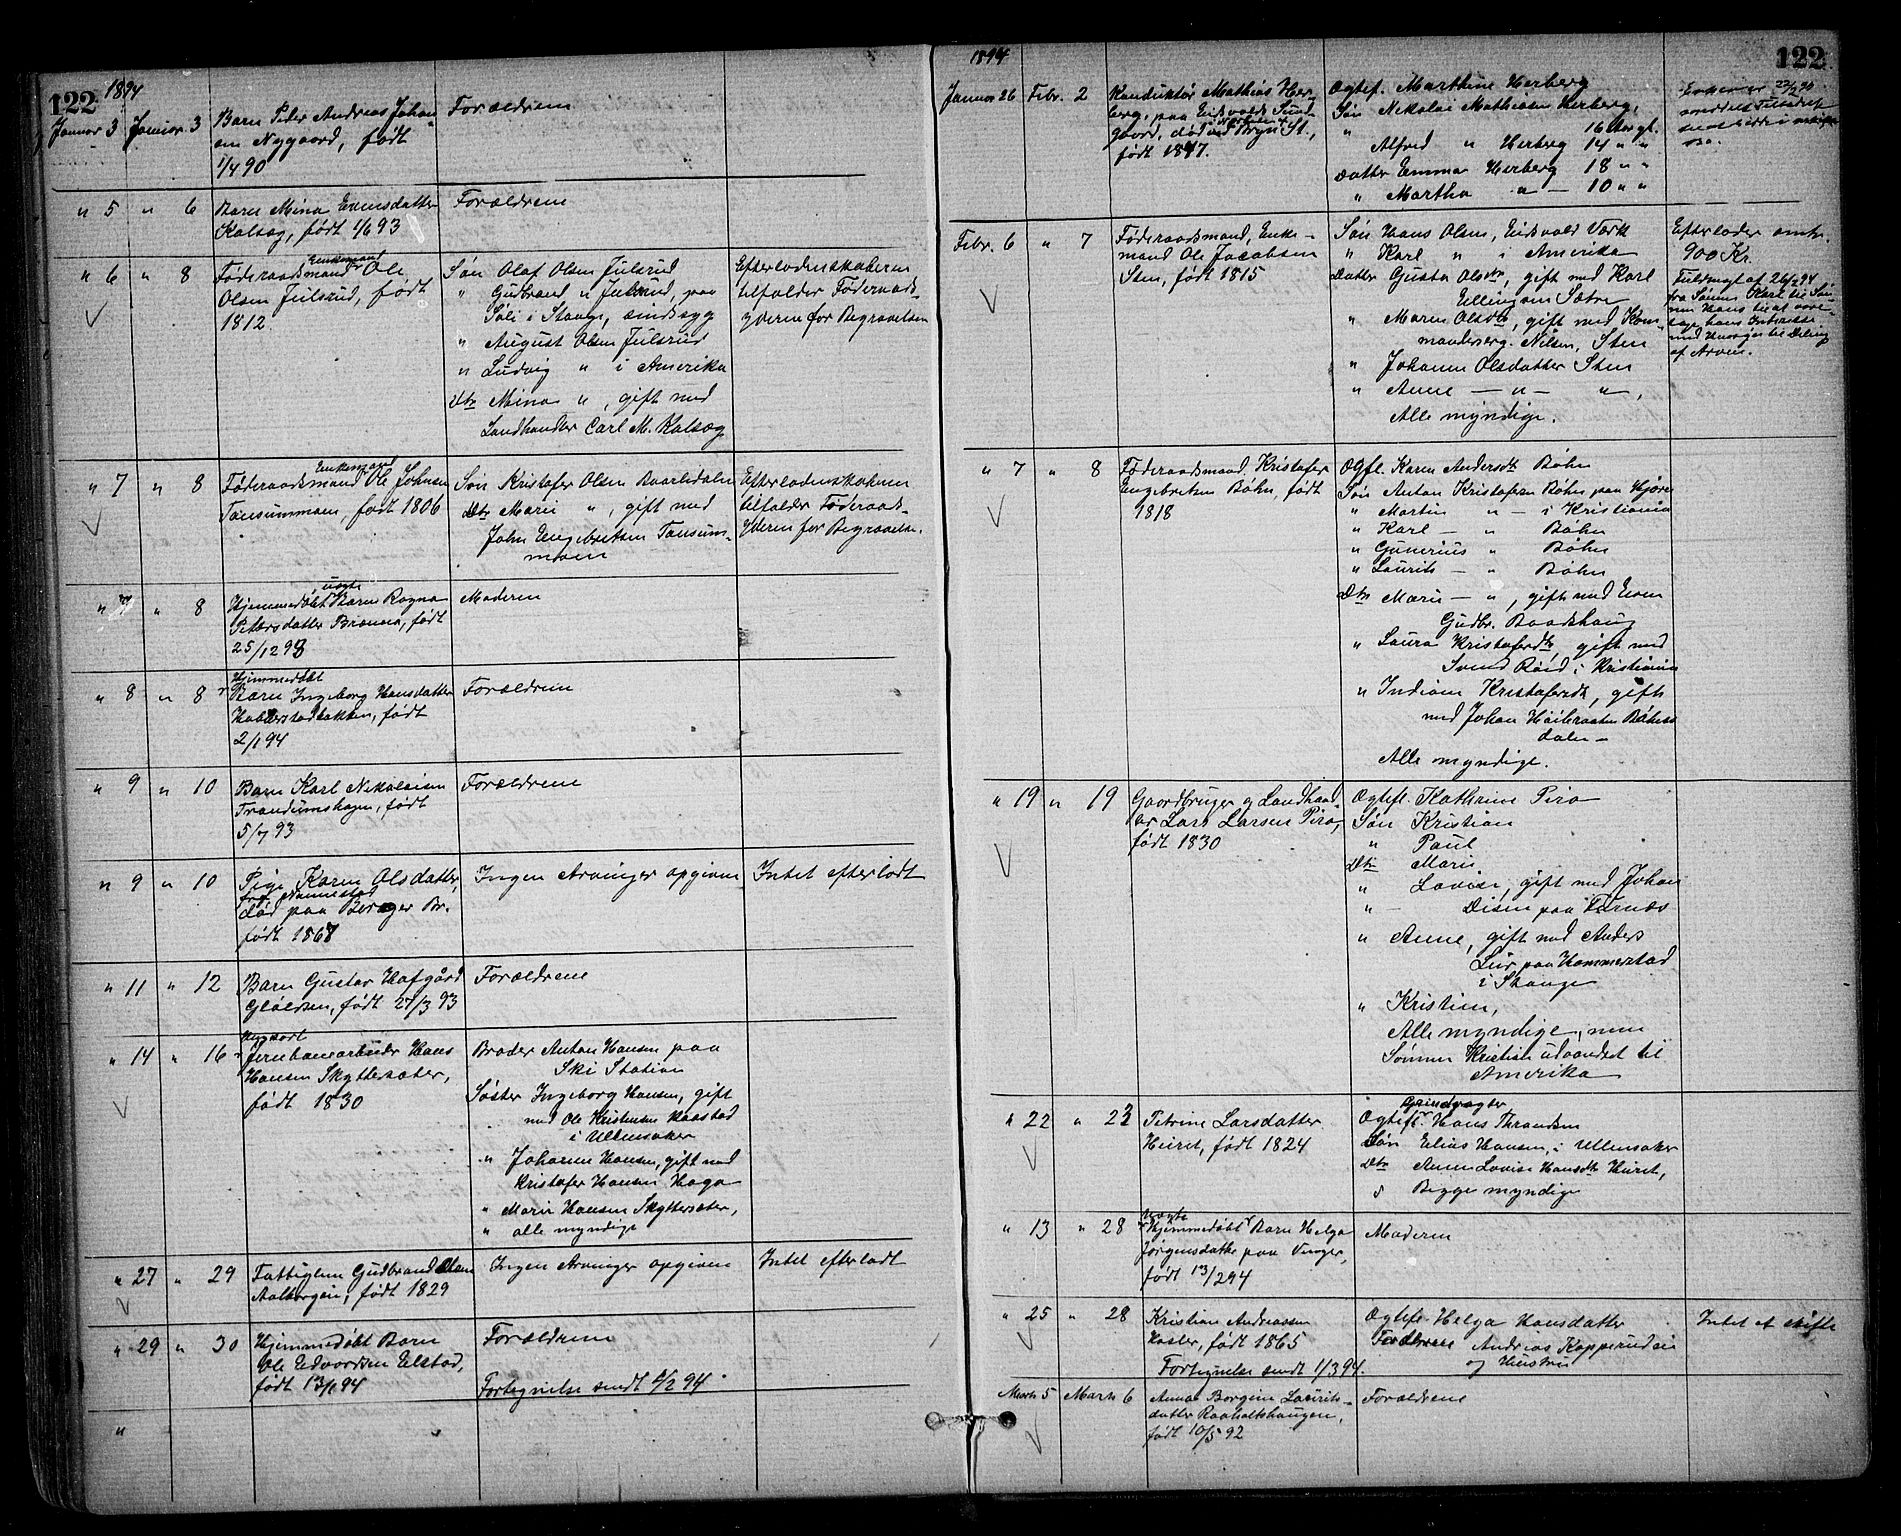 122
1894
Januar 3 Januar 3 Barn Peder Andreas Johan- Forældrene
sen Nygaard, født
1/4 90
" 5 " 6 Barn Mina Evensdatter Forældrene
Kalsæg, født 1/6 93
" 6 " 8 Føderaadsmand Enkemand Ole
Olsen Julsrud, født
1812.
Søn Olaf Olsen Julsrud
" Gudbrand " Julsrud, paa
Søli i Stange, sindssyg
" August Olsen Julsrud
" Ludvig " i Amerika
Dtr Mina ", gift med
Landhandler Carl M. Kalsæg
Efterladenskaberne
tilfalder Føderaads-
yderen for Begravelsen
" 7 " 8 Føderaadsmand Enkemand Ole Johnsen
Tønsummoen, født 1806
Søn Kristofer Olsen Baarlidalen
Dtr Marie ", gift med
John Engebretsen Tønsum-
moen
Efterladenskaberne
tilfalder Føderaads-
yderen for Begravelse.
" 7 " 8 Hjemmedøbt uægte Barn Ragna Moderen
Petersdatter Brænna, født
25/12 93
" 8 " 8 Hjemmedøbt
Barn Ingeborg Hansdatter Forældrene
født
2/1 94
" 9 " 10 Barn Karl Nikolaisen Forældrene
Trandumshagen, født
5/7 93
" 9 " 10 Pige Karen Olsdatter, Ingen Arvinger opgiven Intet efterladt
fra
død paa Berger Br.
født 1867
" 11 " 12 Barn Gustav Hafgård Forældrene
født 27/3 93
" 14 " 16 Ungkarl
Jernbanearbeider Hans
Hansen Skyttersæter,
født 1830
Broder Anton Hansen paa
Ski Station
Søster Ingeborg Hansen, gift
med Ole Kristensen Haastad
i Ullensaker
" Johanne Hansen, gift med
Kristofer Hansen Haga
" Marie Hansen Skyttersæter,
" alle myndige
" 27 " 29 Fattiglem Gudbrand Olsen Ingen Arvinger opgiven Intet efterladt
født 1829
" 29 " 30 Hjemmedøbt Barn Forældrene
Ole Edvardsen Elstad,
født 13/1 94
Fortegnelse sendt 6/2 94.
"
1894
122
Januar 26 Febr. 2 Konduktør Mathias Her-
berg, paa Eidsvolds Sund-
gaard, død ved Bryn St.,
født 1847.
Ogtef. Marthine Herberg
Søn Nikolai Mathiasen Herberg,
16 Aar gl.
" Alfred " Herberg 14 " "
Datter Emma Herberg 18 " "
" Martha " — 10 " "
Enken er 22/2 94
meddelt Tilladelse
til at sidde i uskiftet
Bo.
Febr. 6 " 7 Føderaadsmand, Enke-
mand Ole Jacobsen
Sten, født 1815
Søn Hans Olsen, Eidsvold Værk
" Karl " i Amerika
Datter Gusta Olsdtr, gift med Karl
Ellingsen Sætre
" Maren Olsdtr, gift med Kom-
manderserg. Nilsen, Sten
" Johanne Olsdatter Sten
" Anne — " — ",
Alle myndige.
Efterlader omtr.
900 Kr.
Fuldmagt af 26/2 94
fra Sønnen Karl til Søn-
nen Hans til at vare-
tage hans Interesse
med Hensyn til Deling
af Arven.
" 7 " 8 Føderaadsmand Kristofer
Engebretsen Bøhn, født
1818
Ogtf. Karen Andersdtr Bøhn
Søn Anton Kristofersen Bøhn paa Hjøra
" Martin " — i Kristiania
" Karl — " Bøhn
" Gunerius " Bøhn
" Laurits — " Bøhn
Dtr Marie — ", gift med Even
Gudbr. Baadshaug
" Laura Kristofersdtr, gift med
Svend Røid i Kristiania
" Indiane Kristofersdtr, gift
med Johan Høibraaten Bøhns-
dalen —
Alle myndige.
" 19 " 19 Gaardbruger og Landhand-
ler Lars Larsen Piro,
født 1830
Ogtefl. Kathrine Piro
Søn Kristian
" Paul
Dtr Marie
" Lovise, gift med Johan
" — Disen paa Furnæs
" Anne, gift med Anders
Lier paa Hammerstad
i Stange
" Kristine,
Alle myndige, men
Sønnen Kristian udvandret til
Amerika
" 22 " 23 Petrine Larsdatter
Heiret, født 1824
Grindvogter
Ogtefl. Hans Throndsen
Søn Elius Hansen, i Ullensaker
Dtr Anne Lovise Hansdtr Heiret,
Begge myndige
" 13 " 28 Uægte
Hjemmedøbt Barn Helga Moderen
Jørgensdatter paa Vinger,
født 13/2 94
" 25 " 28 Kristian Andreassen
født 1865
Fortegnelse sendt 1/3 94.
Ogtefl. Helga Hansdatter
Forældrene Andreas Kopperudeie
og Hustru
Intet at skifte
Marts 5 Marts 6 Anna Borgine Laurits-
datter Raaholtshaugen,
født 10/5 92
Forældrene